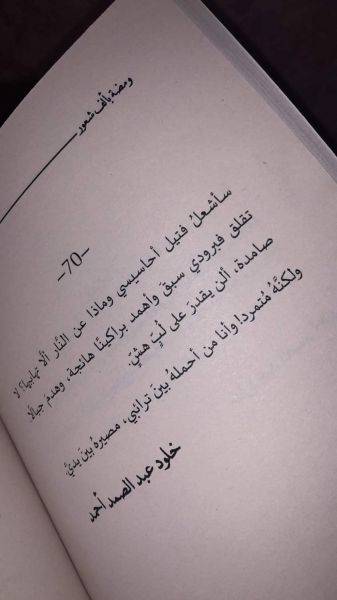 ومضة بألف شعور
-70-
سأشعلُ فتيل أحاسيسي وماذا عن النَّار ألا تهابها؟ لا
تقلق فبرودي سبق وأهمد براكينًا هائجة، وهدم جبالًا
صامدة، ألن يقدرَ على لُبٍّ هشٍّ.
ولكنَّهُ مُتمردا وأنا من أحملهُ بينَ ترائبي، مصيرهُ بينَ يديَّ.
خلود عبد الصمد أحمد